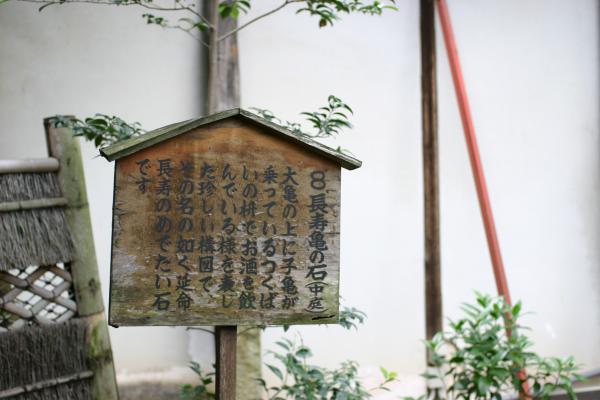 8 長寿亀の石(中庭)
大亀の上に子亀が
乗っているつくば
いの枡でお酒を飲
んでいる様を表し
た珍しい構図で、
その名の如く延命
長寿のめでたい石
です。